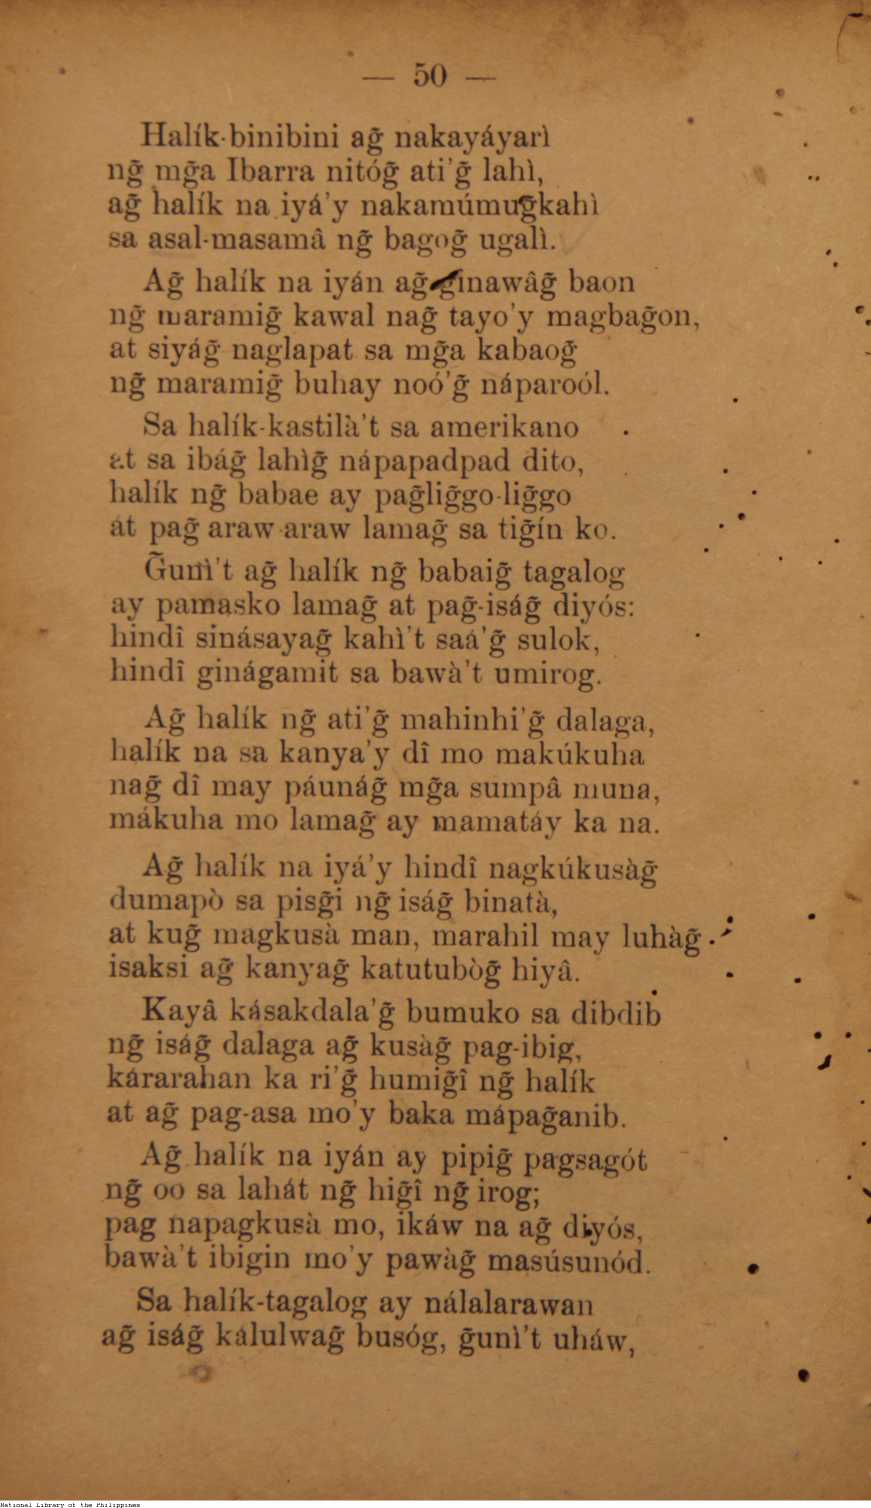 — 50 —
Halík-binibini ag̃ nakayáyarì
ng̃ mg̃a Ibarra nitóg̃ ati'g̃ lahì,
ag̃ halík na iyá'y nakamúmug̃kahì
sa asal-masamâ ng̃ bagog̃ ugalì.
Ag̃ halík na iyán ag̃ g̃inawâg̃ baon
ng̃ maramig̃ kawal nag̃ tayo'y magbag̃on,
at siyág̃ naglapat sa mg̃a kabaog̃
ng̃ maramig̃ buhay noó'g̃ náparoól.
Sa halík-kastilà't sa amerikano
at sa ibág̃ lahìg̃ nápapadpad dito,
halík ng̃ babae ay pag̃lig̃go-lig̃go
at pag̃ araw-araw lamag̃ sa tig̃ín ko.
G̃unì't ag̃ halík ng̃ babaig̃ tagalog
ay pamasko lamag̃ at pag̃-iság̃ diyós:
hindî sinásayag̃ kahì't saá'g̃ sulok,
hindî ginágamit sa bawà't umirog.
Ag̃ halík ng̃ ati'g̃ mahinhi'g̃ dalaga,
halík na sa kanya'y dî mo makúkuha
nag̃ dî may páunág̃ mg̃a sumpâ muna,
mákuha mo lamag̃ ay mamatáy ka na.
Ag̃ halík na iyá'y hindî nagkúkusàg̃
dumapò sa pisg̃i ng̃ iság̃ binatà,
at kug̃ magkusà man, marahil may luhàg̃
isaksi ag̃ kanyag̃ katutubòg̃ hiyâ.
Kayâ kásakdala'g̃ bumuko sa dibdib
ng̃ iság̃ dalaga ag̃ kusàg̃ pag-ibig,
kárarahan ka ri'g̃ humig̃î ng̃ halík
at ag̃ pag-asa mo'y baka mápag̃anib.
Ag̃ halík na iyán ay pipig̃ pagsagót
ng̃ oo sa lahát ng̃ hig̃î ng̃ irog;
pag napagkusà mo, ikáw na ag̃ diyós,
bawà't ibigin mo'y pawàg̃ masúsunód.
Sa halík-tagalog ay nálalarawan
ag̃ iság̃ kálulwag̃ busóg, g̃unì't uháw,
National Library of the Philippines